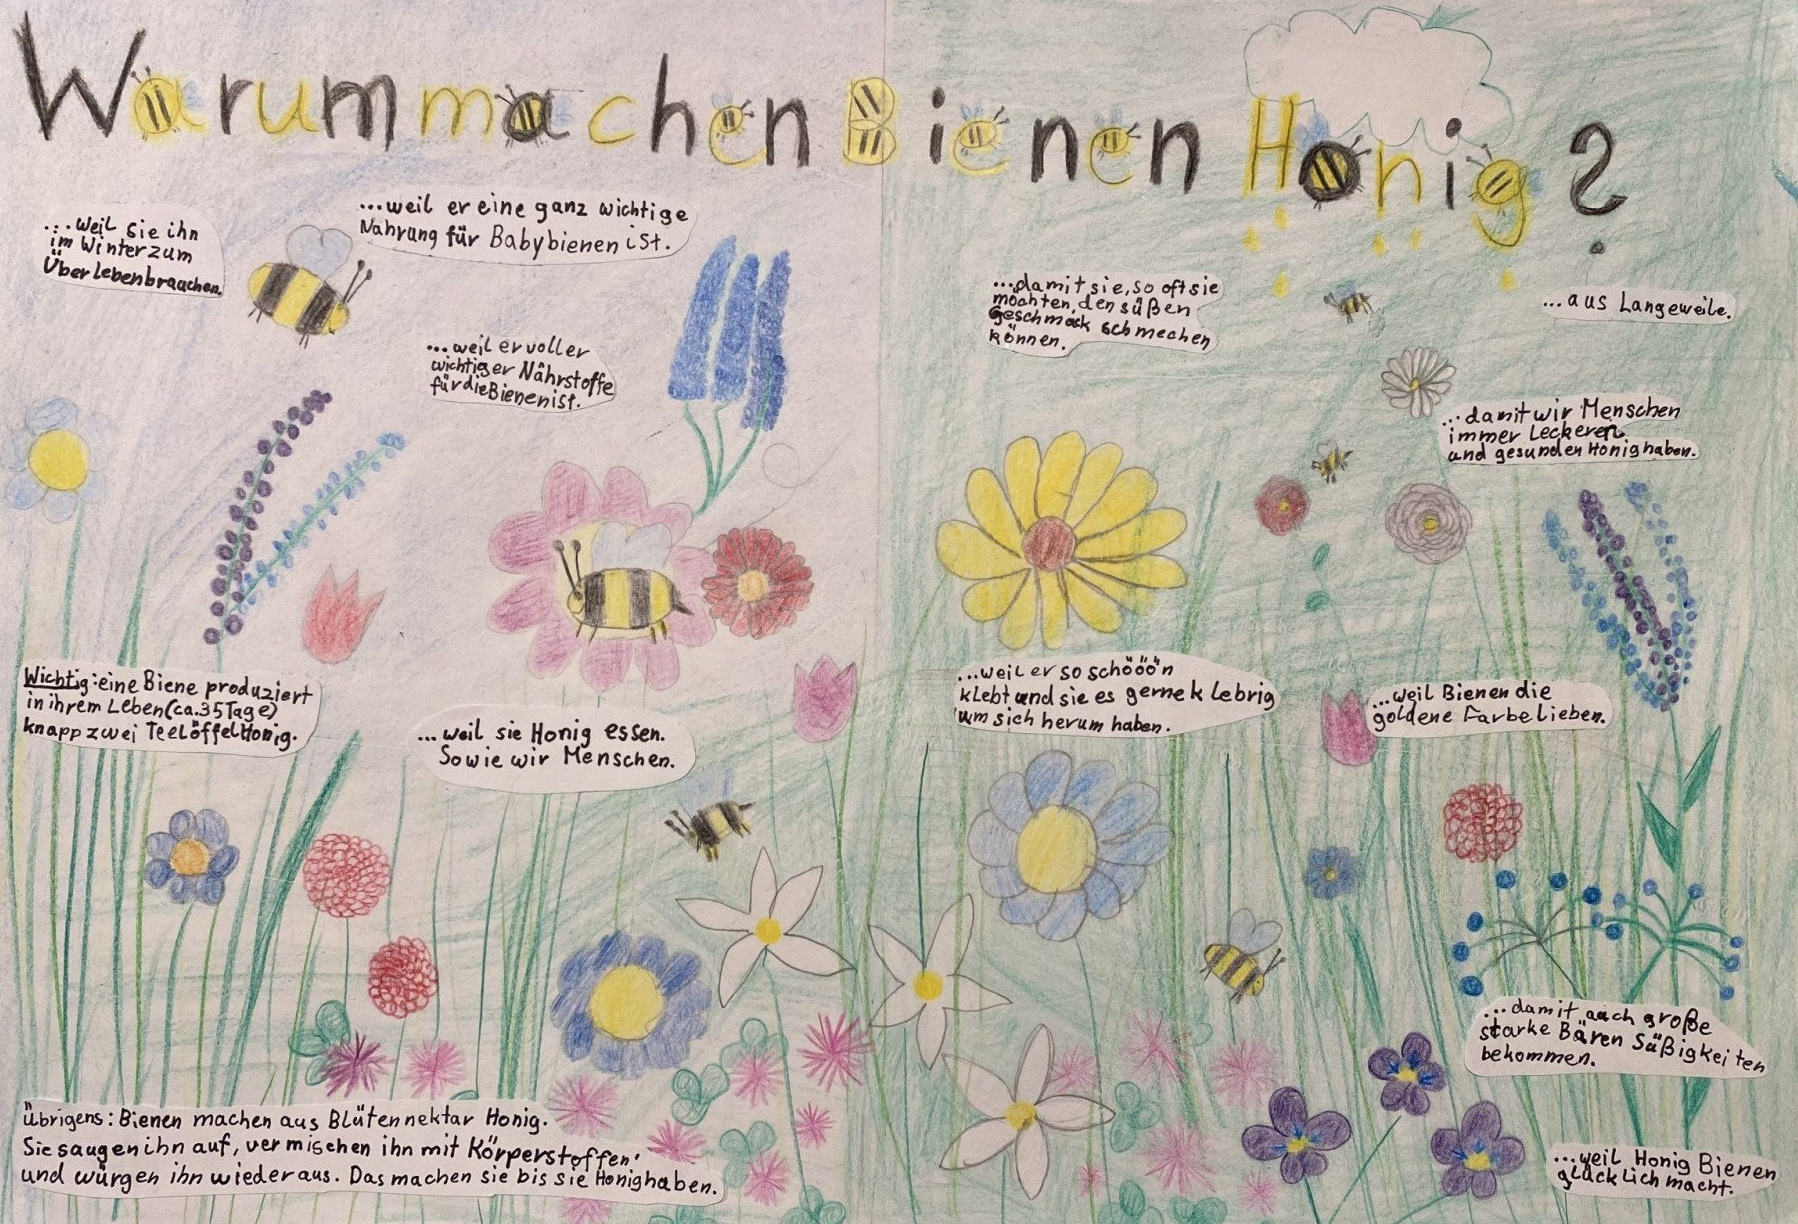 Warum machen Bienen Honig?
...weil sie ihn
im Winter zum
Überlebenbrauchen.
...weil er eine ganz wichtige
Nahrung für Babybienen ist.
...weil er voller
wichtiger Nährstoffe
für die Bienen ist.
...damit sie, so oft sie
möchten, den süßen
Geschmack schmecken
können.
...aus Langeweile.
...damit wir Menschen
immer Leckeren
und gesunden Honig haben.
Wichtig: eine Biene produziert
in ihrem Leben (ca. 35 Tage)
knapp zwei Teelöffel Honig.
...weil sie Honig essen.
Sowie wir Menschen.
...weil er so schööön
klebt und sie es gerne klebrig
um sich herum haben.
...weil Bienen die
goldene Farbe lieben.
...damit auch große
starke Bären Süßigkeiten
bekommen.
Übrigens: Bienen machen aus Blütennektar Honig.
Sie saugen ihn auf, vermischen ihn mit Körperstoffen
und würgen ihn wieder aus. Das machen sie bis sie Honig haben.
...weil Honig Bienen
glücklich macht.